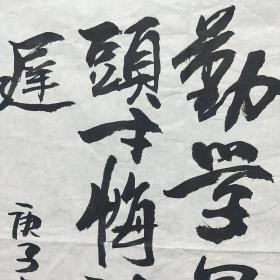 勤学
頭才悔
遲
庚子